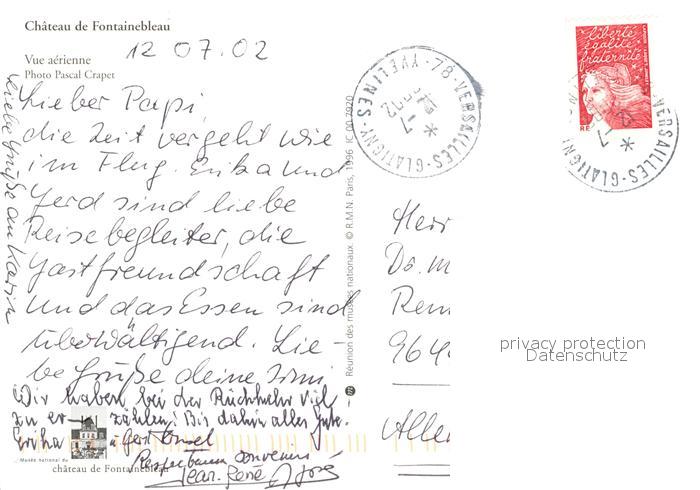 Château de Fontainebleau
Vue aérienne
Photo Pascal Crapet
12 07.02
Lieber Papi,
die Zeit vergeht wie
im Flug. Erika und
Gerd sind liebe
Reisebegleiter, die
Gastfreundschaft
und das Essen sind
überwältigend. Lie-
be Grüße deine Irmi
Wir haben bei der Rückkehr viel
zu er- zählen! Bis dahin alles Gute.
Erika Gert
Respectueux souvenirs
Jean-René
liebe Grüße an Karin
Musée national du
château de Fontainebleau
Réunion des musées nationaux © R.M.N. Paris, 1996 IC 00 7020
78-VERSAILLES-GLATIGNY
YVELINES
liberté
égalité
fraternité
RF
VERSAILLES-GLATIGNY
Herr
Rem
964
Alle
privacy protection
Datenschutz